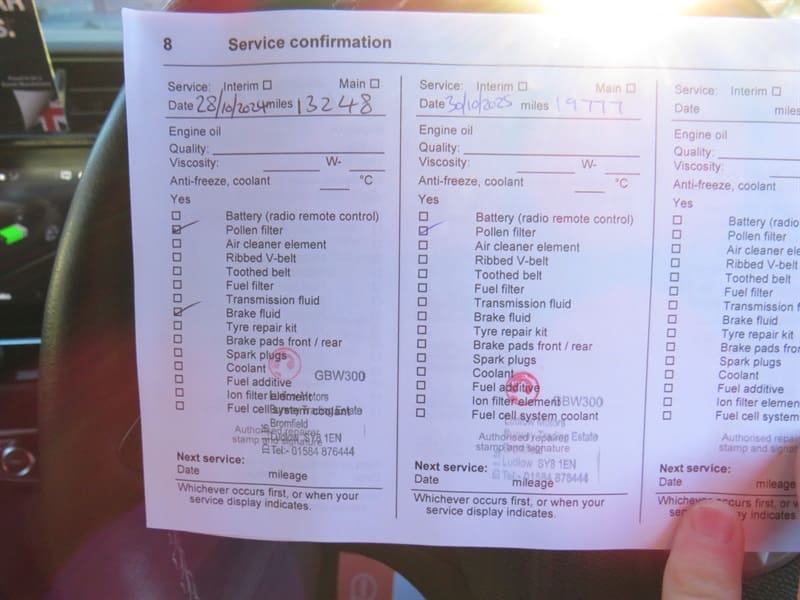 8 Service confirmation
Service: Interim Main
Date 28/10/2024 miles 13248
Engine oil
Quality:
Viscosity: W-
Anti-freeze, coolant °C
Yes
Battery (radio remote control)
Pollen filter
Air cleaner element
Ribbed V-belt
Toothed belt
Fuel filter
Transmission fluid
Brake fluid
Tyre repair kit
Brake pads front / rear
Spark plugs
Coolant
Fuel additive
Ion filter element
Fuel cell system coolant
GBW300
Ludlow Motors
Trading Estate
Bromfield
Ludlow SY8 1EN
Tel:- 01584 876444
Authorised repairer
stamp and signature
Next service:
Date mileage
Whichever occurs first, or when your
service display indicates.
Service: Interim Main
Date 30/10/2025 miles 19777
Engine oil
Quality:
Viscosity: W-
Anti-freeze, coolant °C
Yes
Battery (radio remote control)
Pollen filter
Air cleaner element
Ribbed V-belt
Toothed belt
Fuel filter
Transmission fluid
Brake fluid
Tyre repair kit
Brake pads front / rear
Spark plugs
Coolant
Fuel additive
Ion filter element
Fuel cell system coolant
GBW300
Ludlow Motors
Trading Estate
Ludlow SY8 1EN
Tel:- 01584 876444
Authorised repairer
stamp and signature
Next service:
Date mileage
Whichever occurs first, or when your
service display indicates.
Service: Interim
Date miles
Engine oil
Quality:
Viscosity:
Anti-freeze, coolant
Yes
Battery (radio
Pollen filter
Air cleaner ele
Ribbed V-belt
Toothed belt
Fuel filter
Transmission f
Brake fluid
Tyre repair kit
Brake pads fron
Spark plugs
Coolant
Fuel additive
Ion filter elemen
Fuel cell system
Authorised repaire
stamp and signat
Next service:
Date mileage
Whichever occurs first, or w
display indicates.